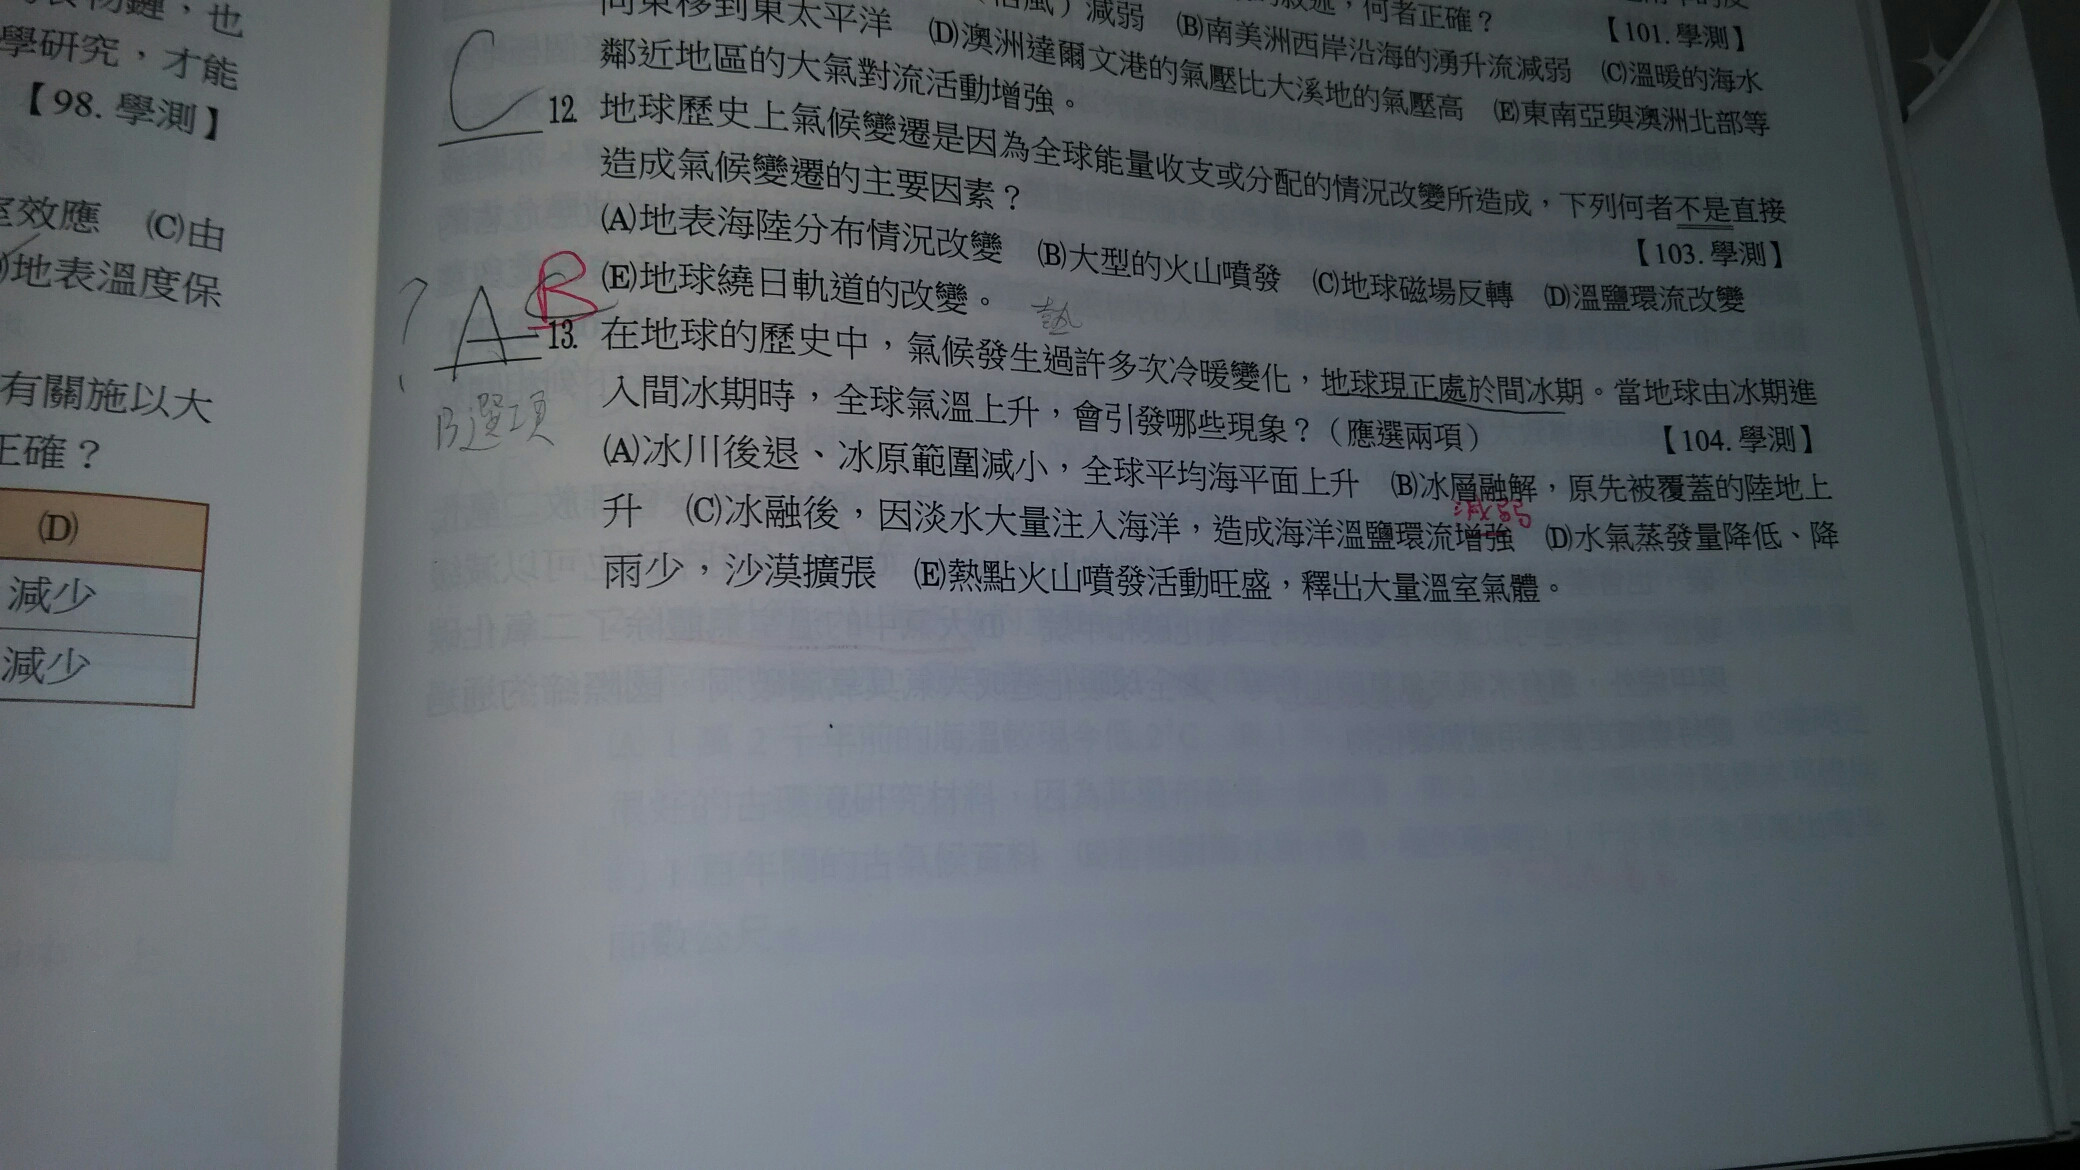 食物鏈，也
學研究，才能
【98. 學測】
室效應 (C)由
地表溫度保
有關施以大
正確？
(D)
減少
減少
減弱 (B)南美洲西岸沿海的湧升流減弱 (C)溫暖的海水
的敘述，何者正確？ 【101. 學測】
向東移到東太平洋 (D)澳洲達爾文港的氣壓比大溪地的氣壓高 (E)東南亞與澳洲北部等
鄰近地區的大氣對流活動增強。
C 12. 地球歷史上氣候變遷是因為全球能量收支或分配的情況改變所造成，下列何者不是直接
造成氣候變遷的主要因素？ 【103. 學測】
(A)地表海陸分布情況改變 (B)大型的火山噴發 (C)地球磁場反轉 (D)溫鹽環流改變
(E)地球繞日軌道的改變。
熱
? A B 13. 在地球的歷史中，氣候發生過許多次冷暖變化，地球現正處於間冰期。當地球由冰期進
B選項
入間冰期時，全球氣溫上升，會引發哪些現象？（應選兩項） 【104. 學測】
(A)冰川後退、冰原範圍減小，全球平均海平面上升 (B)冰層融解，原先被覆蓋的陸地上
減弱
升 (C)冰融後，因淡水大量注入海洋，造成海洋溫鹽環流增強 (D)水氣蒸發量降低、降
雨少，沙漠擴張 (E)熱點火山噴發活動旺盛，釋出大量溫室氣體。